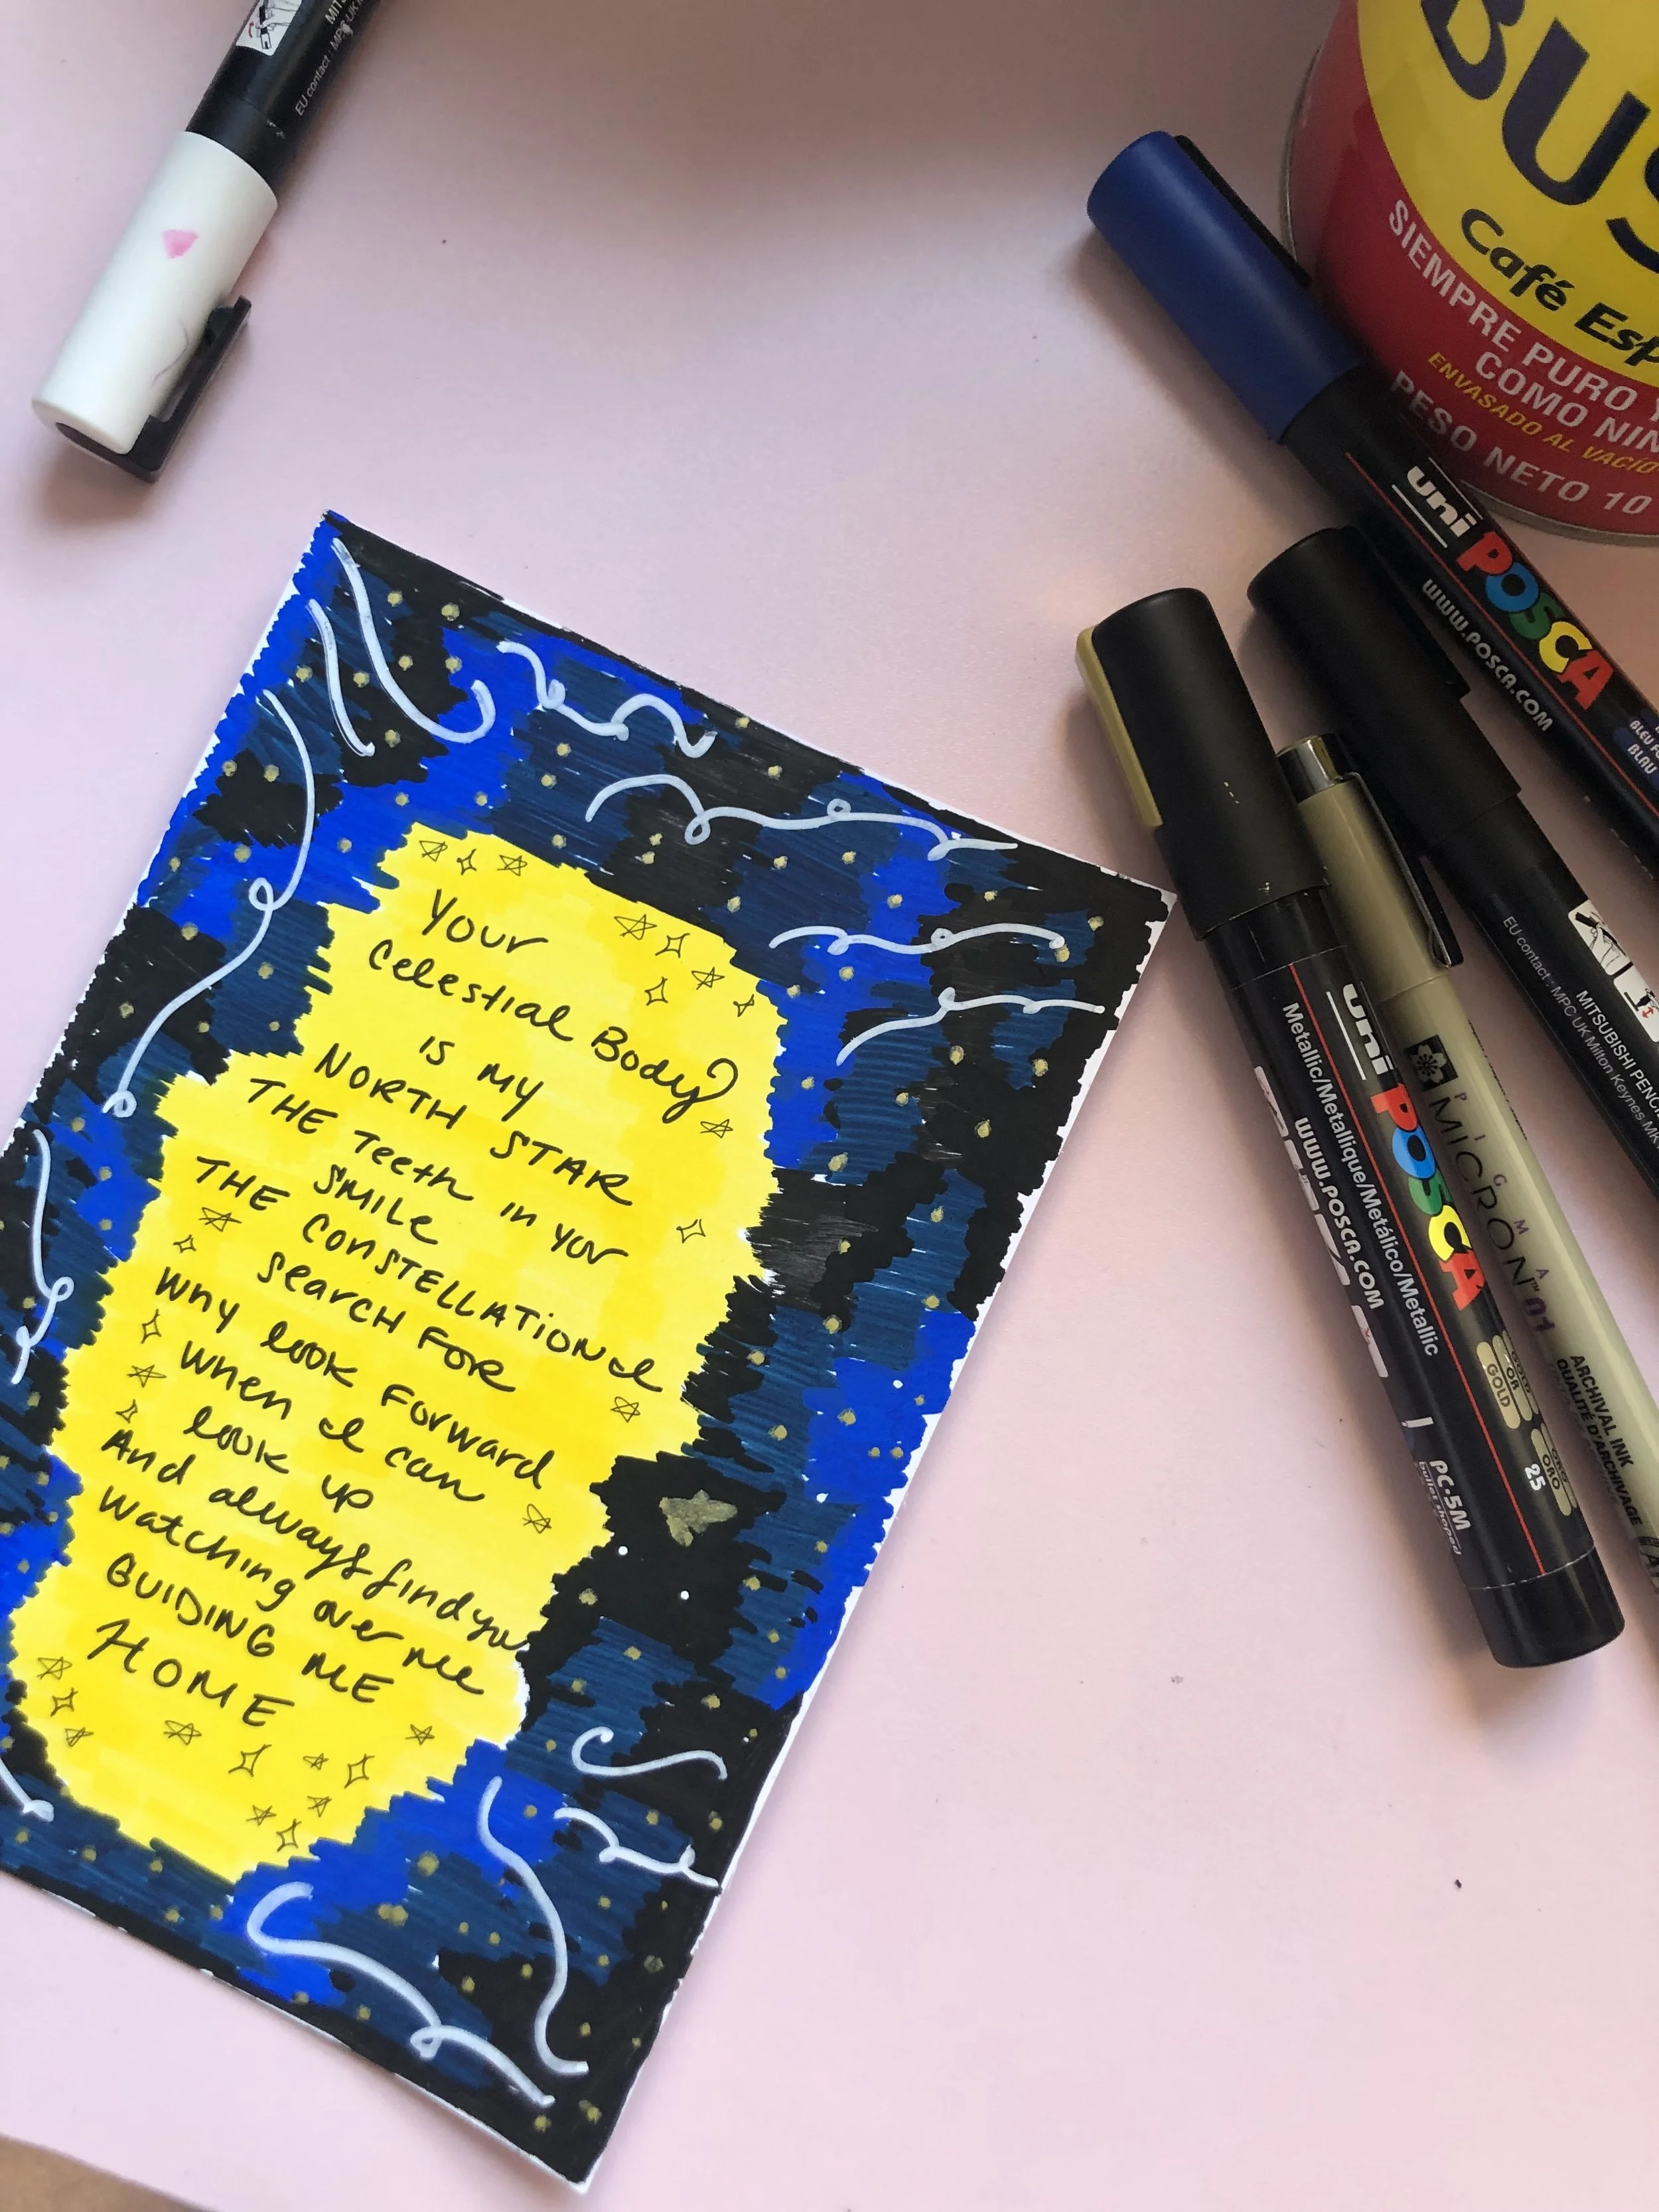 MITS
EU contact : MPC UK
BUS
Café Esp
SIEMPRE PURO Y
COMO NIN
ENVASADO AL VACIO
PESO NETO 10
uni POSCA
WWW.POSCA.COM
BLEU F
BLAU
EU contact : MPC UK Milton Keynes MK
MITSUBISHI PENCIL
uni POSCA
Metallic/Métallique/Metálico/Metallic
WWW.POSCA.COM
GOLD
OR
GOLD
ORO
ORO
25
PC-5M
bullet shaped
PIGMA
MICRON™ 01
ARCHIVAL INK
QUALITÉ D'ARCHIVAGE
Your
Celestial Body
is my
NORTH STAR
THE Teeth in your
SMILE
THE CONSTELLATION I
SEARCH FOR
Why look Forward
When I can
look up
And always find you
watching over me
GUIDING ME
HOME